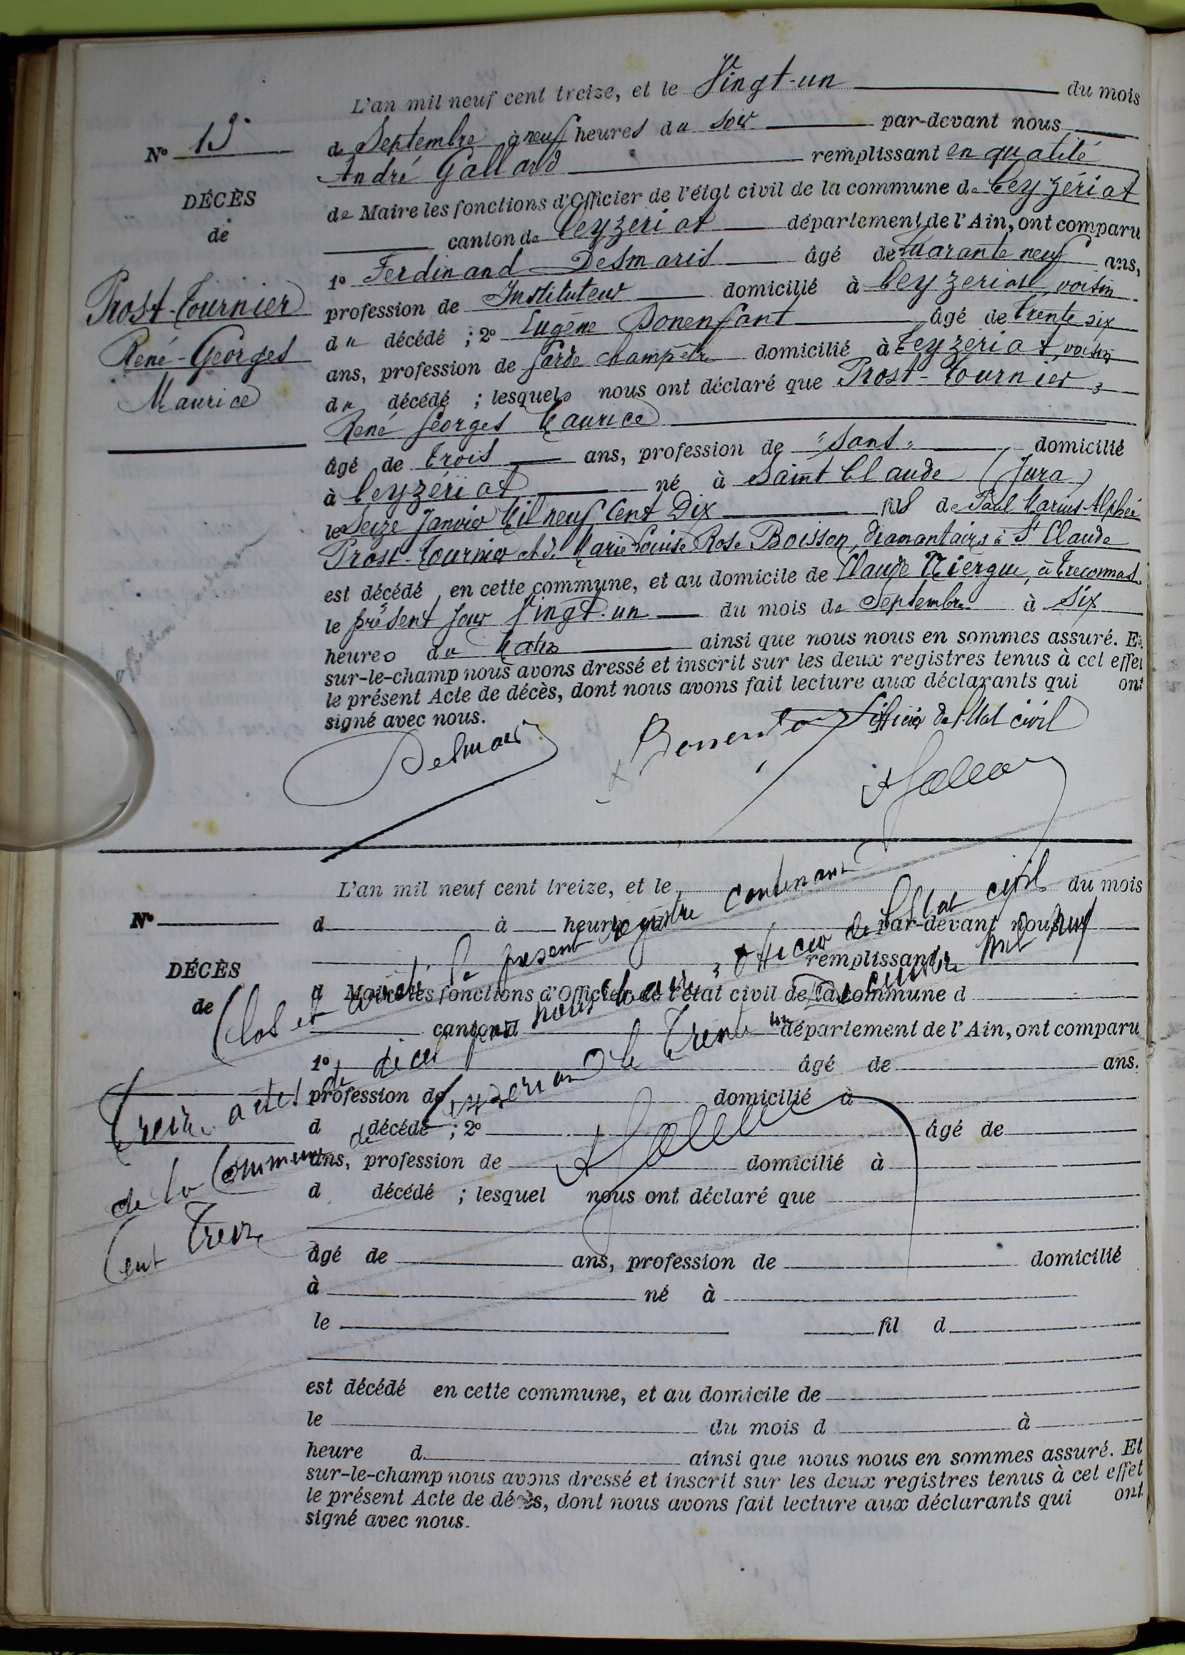 L'an mil neuf cent treize, et le Vingt-un du mois
No 13
de Septembre à neuf heures du soir par-devant nous
André Galland remplissant en qualité
DÉCÈS
de Maire les fonctions d'Officier de l'état civil de la commune de Ceyzériat
de
canton de Ceyzeriat département de l'Ain, ont comparu
1o Ferdinand Desmaris âgé de quarante neuf ans,
Prost-Tournier
profession de Instituteur domicilié à Ceyzeriat, voisin
du décédé ; 2o Eugène Bonenfant âgé de trente six
René-Georges
ans, profession de garde champetre domicilié à Ceyzeriat, voisin
Maurice
du décédé ; lesquels nous ont déclaré que Prost-Tournier,
René Georges Maurice
âgé de trois ans, profession de "sans" domicilié
à Ceyzériat né à Saint Claude (Jura)
le Seize Janvier Mil neuf Cent Dix fils de Paul Marius Alphée
Prost-Tournier et de Marie Louise Rose Boisson, diamantaires à St Claude
est décédé en cette commune, et au domicile de Claude à Treconnas,
le présent jour Vingt-un du mois de Septembre à six
heures du Matin ainsi que nous nous en sommes assuré. Et
sur-le-champ nous avons dressé et inscrit sur les deux registres tenus à cet effet
le présent Acte de décès, dont nous avons fait lecture aux déclarants qui ont
signé avec nous.
L'Officier de l'Etat civil
Desmaris Bonenfant
AGalland
L'an mil neuf cent treize, et le du mois
No
d à heure d par-devant nous
remplissant
DÉCÈS
d Maire les fonctions d'Officier de l'état civil de la commune d
de
canton d département de l'Ain, ont comparu
1o âgé de ans.
profession de domicilié à
d décédé ; 2o âgé de
ans, profession de domicilié à
d décédé ; lesquel nous ont déclaré que
âgé de ans, profession de domicilié
à né à
le fil d
est décédé en cette commune, et au domicile de
le du mois d à
heure d ainsi que nous nous en sommes assuré. Et
sur-le-champ nous avons dressé et inscrit sur les deux registres tenus à cet effet
le présent Acte de décès, dont nous avons fait lecture aux déclarants qui ont
signé avec nous.
Clos et arrêté le présent registre contenant
treize actes de décès par nous Maire, Officier de l'Etat civil
de la Commune de Ceyzériat le trente un Décembre mil neuf
Cent Treize
AGalland